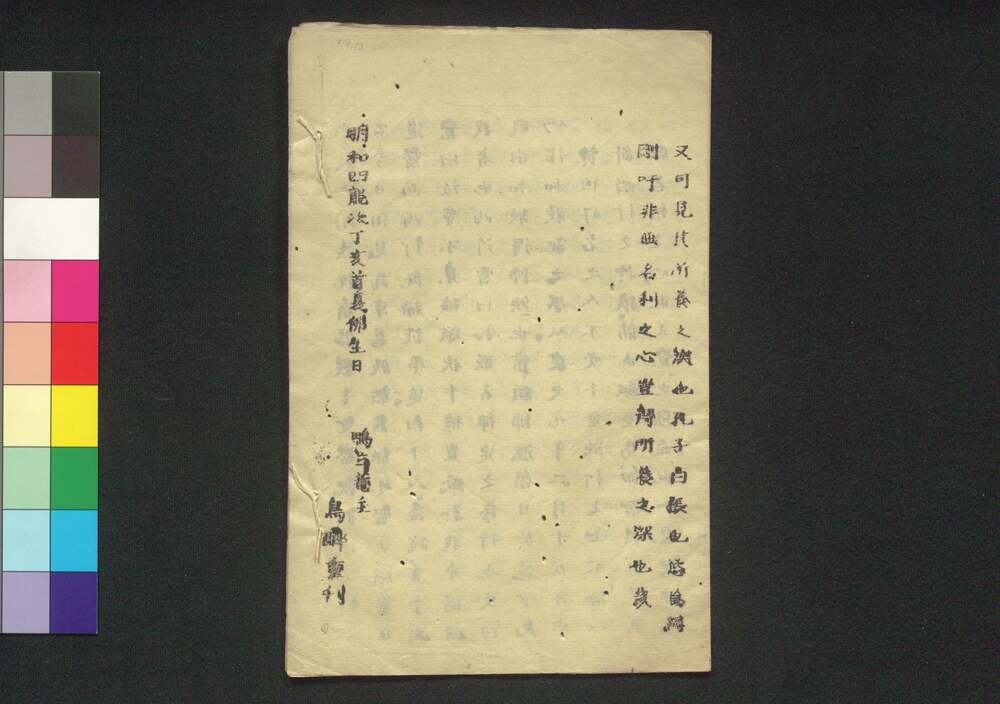 又可見其所養之淵也孔子曰棖也慾焉得
剛吁非無名利之心豈得所養之深也哉
明和四龍次丁亥首夏佛生日
鴨立菴主
鳥酔重利